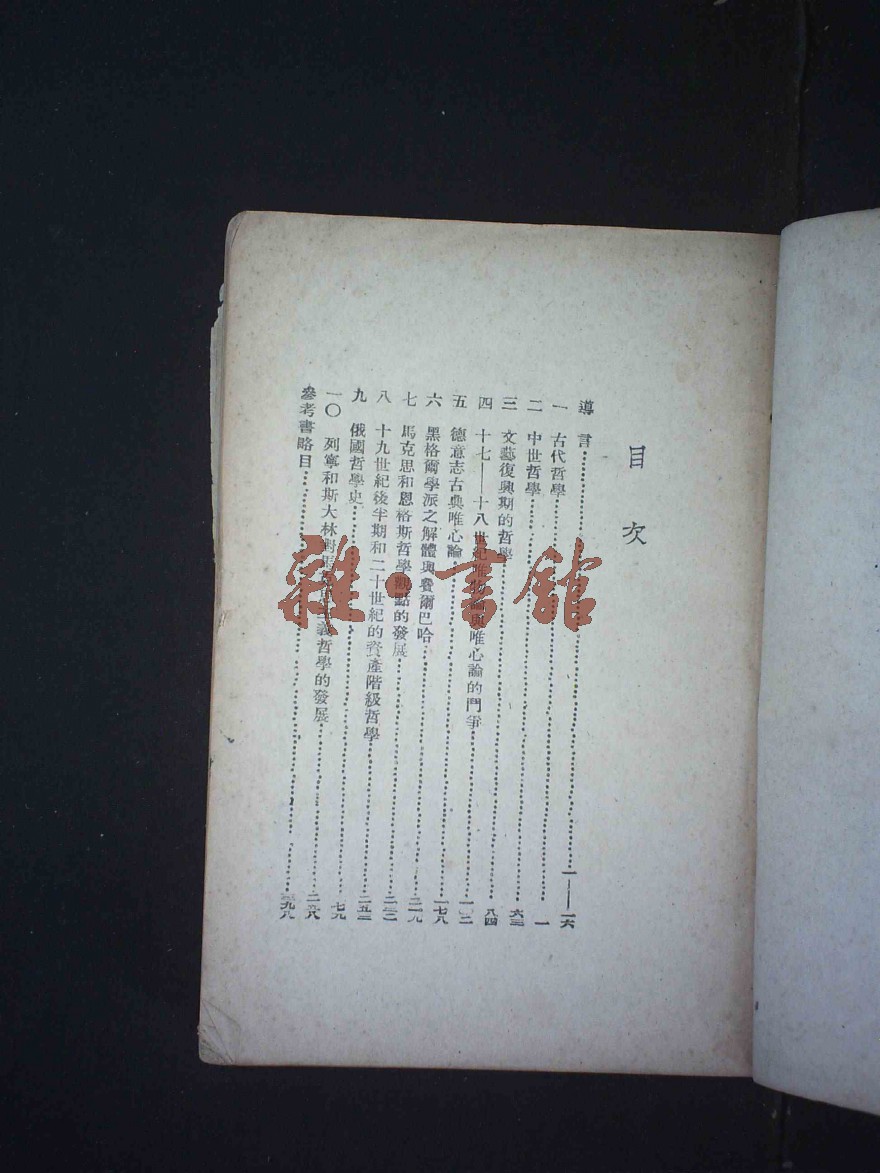 目次
導言 一——一六
一 古代哲學 一
二 中世哲學 六三
三 文藝復興期的哲學 八四
四 十七——十八世紀唯物論與唯心論的鬥爭 一〇二
五 德意志古典唯心論 一七八
六 黑格爾學派之解體與費爾巴哈
七 馬克思和恩格斯哲學觀點的發展
八 十九世紀後半期和二十世紀的資產階級哲學
九 俄國哲學史
一〇 列寧和斯大林對馬克思主義哲學的發展
參考書略目
雜·書館